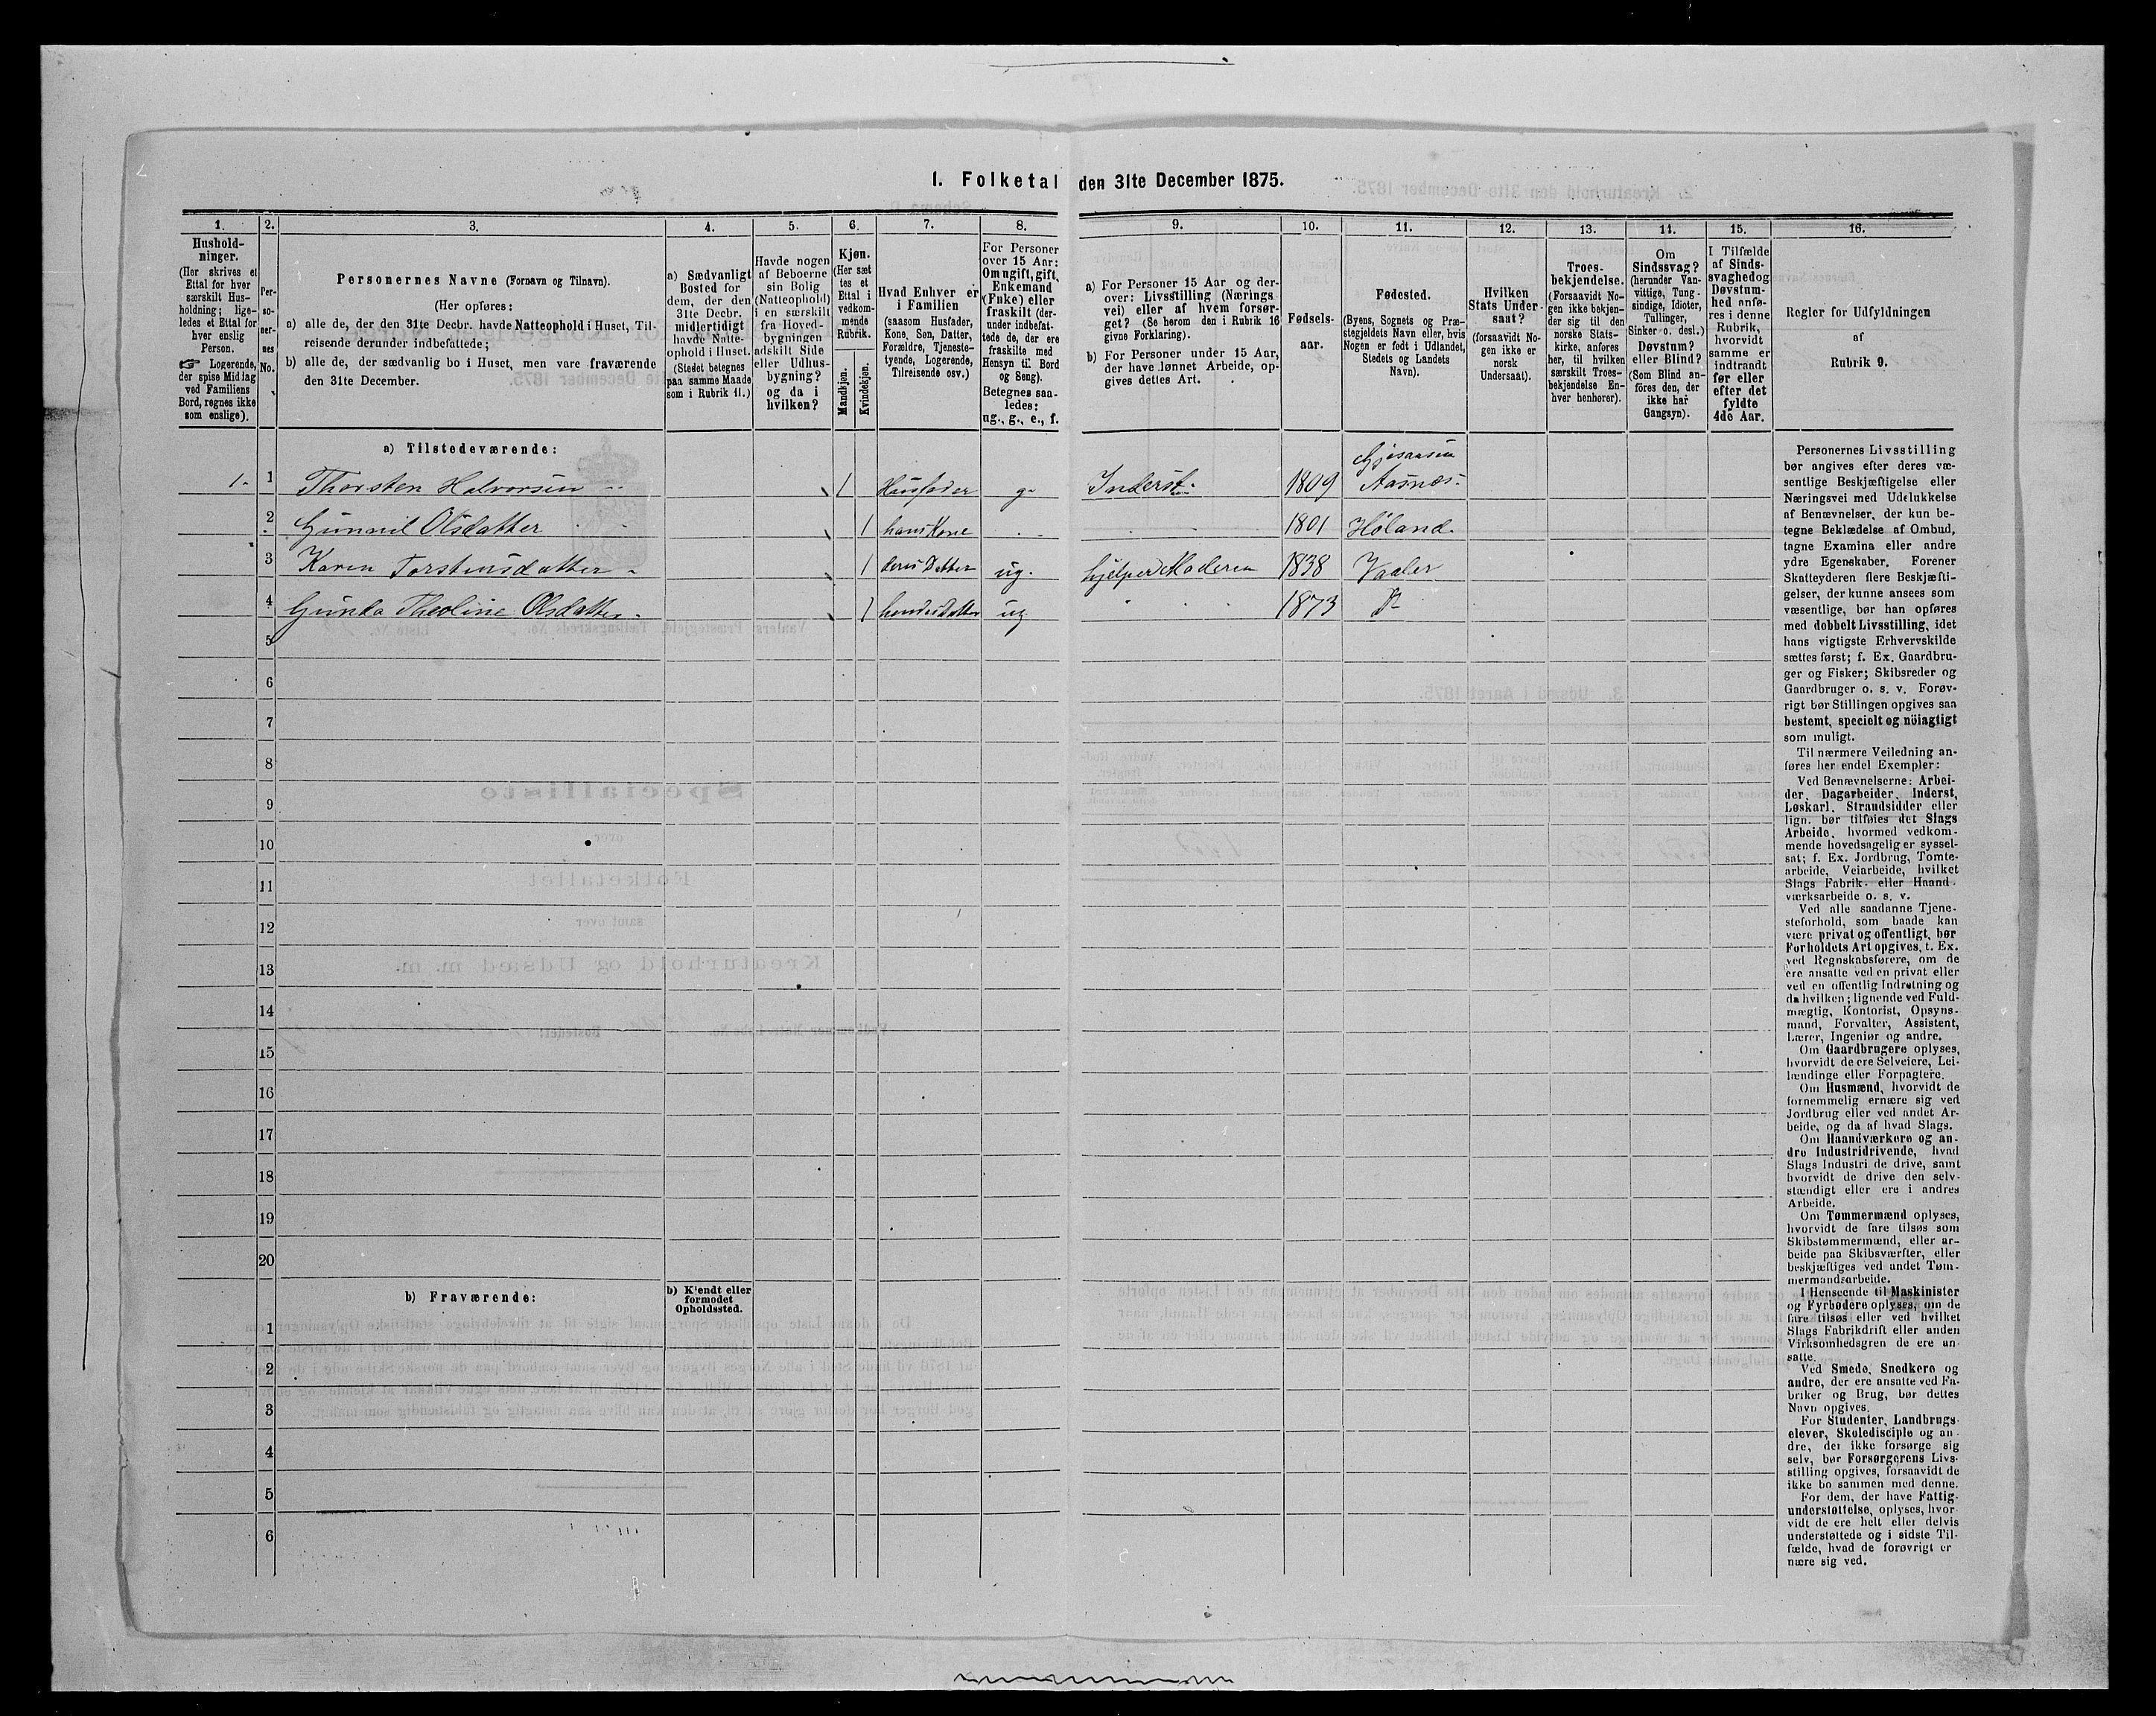 1. Folketal den 31te December 1875.
1.
2.
3.
4.
5.
6.
7.
8.
9.
10.
11.
12.
13.
14.
15.
16.
Hushold-
ninger.
(Her skrives et
Ettal for hver
særskilt Hus-
holdning; lige-
ledes et Ettal for
hver enslig
Person.
☞ Logerende,
der spise Middag
ved Familiens
Bord, regnes ikke
som enslige).
Per-
so-
ner-
nes
No.
Personernes Navne (Fornavn og Tilnavn).
(Her opføres:
a) alle de, der den 31te Decbr. havde Natteophold i Huset, Til-
reisende derunder indbefattede;
b) alle de, der sædvanlig bo i Huset, men vare fraværende
den 31te December.
a) Sædvanligt
Bosted for
dem, der den
31te Decbr.
midlertidigt
havde Natte-
ophold i Huset.
(Stedet betegnes
paa samme Maade
som i Rubrik 11.)
Havde nogen
af Beboerne
sin Bolig
(Natteophold)
i en særskilt
fra Hoved-
bygningen
adskilt Side
eller Udhus-
bygning?
og da i
hvilken?
Kjøn.
(Her sæt
tes et
Ettal i
vedkom-
mende
Rubrik.
Mandkjøn.
Kvindekjøn.
Hvad Enhver er
i Familien
(saasom Husfader,
Kone, Søn, Datter,
Forældre, Tjeneste-
tyende, Logerende,
Tilreisende osv.)
For Personer
over 15 Aar:
Om ugift, gift,
Enkemand
(Enke) eller
fraskilt (der-
under indbefat-
tede de, der ere
fraskilte med
Hensyn til Bord
og Seng).
Betegnes saa-
ledes:
ug., g., e., f.
a) For Personer 15 Aar og der-
over: Livsstilling (Nærings
vei) eller af hvem forsør-
get? (Se herom den i Rubrik 16
givne Forklaring).
b) For Personer under 15 Aar,
der have lønnet Arbeide, op-
gives dettes Art.
Fødsels-
aar.
Fødested.
(Byens, Sognets og Præ-
stegjeldets Navn eller, hvis
Nogen er født i Udlandet,
Stedets og Landets
Navn).
Hvilken
Stats Under-
saat?
(forsaavidt No-
gen ikke er
norsk
Undersaat).
Troes-
bekjendelse.
(Forsaavidt No-
gen ikke bekjen-
der sig til den
norske Stats-
kirke, anføres
her, til hvilken
særskilt Troes-
bekjendelse En-
hver henhører).
Om
Sindssvag?
(herunder Van-
vittige, Tung-
sindige, Idioter,
Tullinger,
Sinker o. desl.)
Døvstum?
eller Blind?
(Som Blind an-
føres den, der
ikke har
Gangsyn).
I Tilfælde
af Sinds-
svaghed og
Døvstum-
hed anfø-
res i denne
Rubrik,
hvorvidt
samme er
indtraadt
før eller
efter det
fyldte
4de Aar.
Regler for Udfyldningen
af
Rubrik 9.
a) Tilstedeværende:
1. 1 Thorsten Halvorsen 1 Husfader g. Inderst. 1809 Gjesaasen Aasnes.
2 Gunnil Olsdatter 1 hans Kone 1801 Høland.
3 Karen Torstensdatter 1 deres Datter ug. hjelper Moderen 1838 Vaaler
4 Gunda Theoline Olsdatter. 1 hendes Datter ug 1873
5
6
7
8
9
10
11
12
13
14
15
16
17
18
19
20
b) Fraværende:
b) Kjendt eller
formodet
Opholdssted.
1
2
3
4
5
6
Personernes Livsstilling
bør angives efter deres væ-
sentlige Beskjæftigelse eller
Næringsvei med Udelukkelse
af Benævnelser, der kun be-
tegne Beklædelse af Ombud,
tagne Examina eller andre
ydre Egenskaber. Forener
Skatteyderen flere Beskjæfti-
gelser, der kunne ansees som
væsentlige, bør han opføres
med dobbelt Livsstilling, idet
hans vigtigste Erhvervskilde
sættes først; f. Ex. Gaardbru-
ger og Fisker; Skibsreder og
Gaardbruger o. s. v. Forøv-
rigt bør Stillingen opgives saa
bestemt, specielt og nöiagtigt
som muligt.
Til nærmere Veiledning an-
føres her endel Exempler:
Ved Benævnelserne: Arbei-
der, Dagarbeider, Inderst,
Løskarl, Strandsidder eller
lign. bør tilføies det Slags
Arbeide, hvormed vedkom-
mende hovedsagelig er syssel-
sat; f. Ex. Jordbrug, Tomte-
arbeide, Veiarbeide, hvilket
Slags Fabrik- eller Haand-
værksarbeide o. s. v.
Ved alle saadanne Tjene-
steforhold, som baade kan
være privat og offentligt, bør
Forholdets Art opgives, t. Ex.
ved Regnskabsførere, om de
ere ansatte ved en privat eller
ved en offentlig Indretning og
da hvilken; lignende ved Fuld-
mægtig, Kontorist, Opsyns-
mand, Forvalter, Assistent,
Lærer, Ingeniør og andre.
Om Gaardbrugere oplyses,
hvorvidt de ere Selveiere, Lei-
lændinge eller Forpagtere.
Om Husmænd, hvorvidt de
fornemmelig ernære sig ved
Jordbrug eller ved andet Ar-
beide, og da af hvad Slags.
Om Haandværkere og an-
dre Industridrivende, hvad
Slags Industri de drive, samt
hvorvidt de drive den selv-
stændigt eller ere i andres
Arbeide.
Om Tømmermænd oplyses,
hvorvidt de fare tilsøs som
Skibstømmermænd, eller ar-
beide paa Skibsværfter, eller
beskjæftiges ved andet Tøm-
mermandsarbeide.
I Henseende til Maskinister
og Fyrbødere oplyses, om de
fare tilsøs eller ved hvilket
Slags Fabrikdrift eller anden
Virksomhedsgren de ere an-
satte.
Ved Smede, Snedkere og
andre, der ere ansatte ved Fa-
briker og Brug, bør dettes
Navn opgives.
For Studenter, Landbrugs-
elever, Skoledisciple og an-
dre, der ikke forsørge sig
selv, bør Forsørgerens Livs-
stilling opgives, forsaavidt de
ikke bo sammen med denne.
For dem, der have Fattig-
understøttelse, oplyses, hvor-
vidt de ere helt eller delvis
understøttede og i sidste Til-
fælde, hvad de forøvrigt er
nære sig ved.